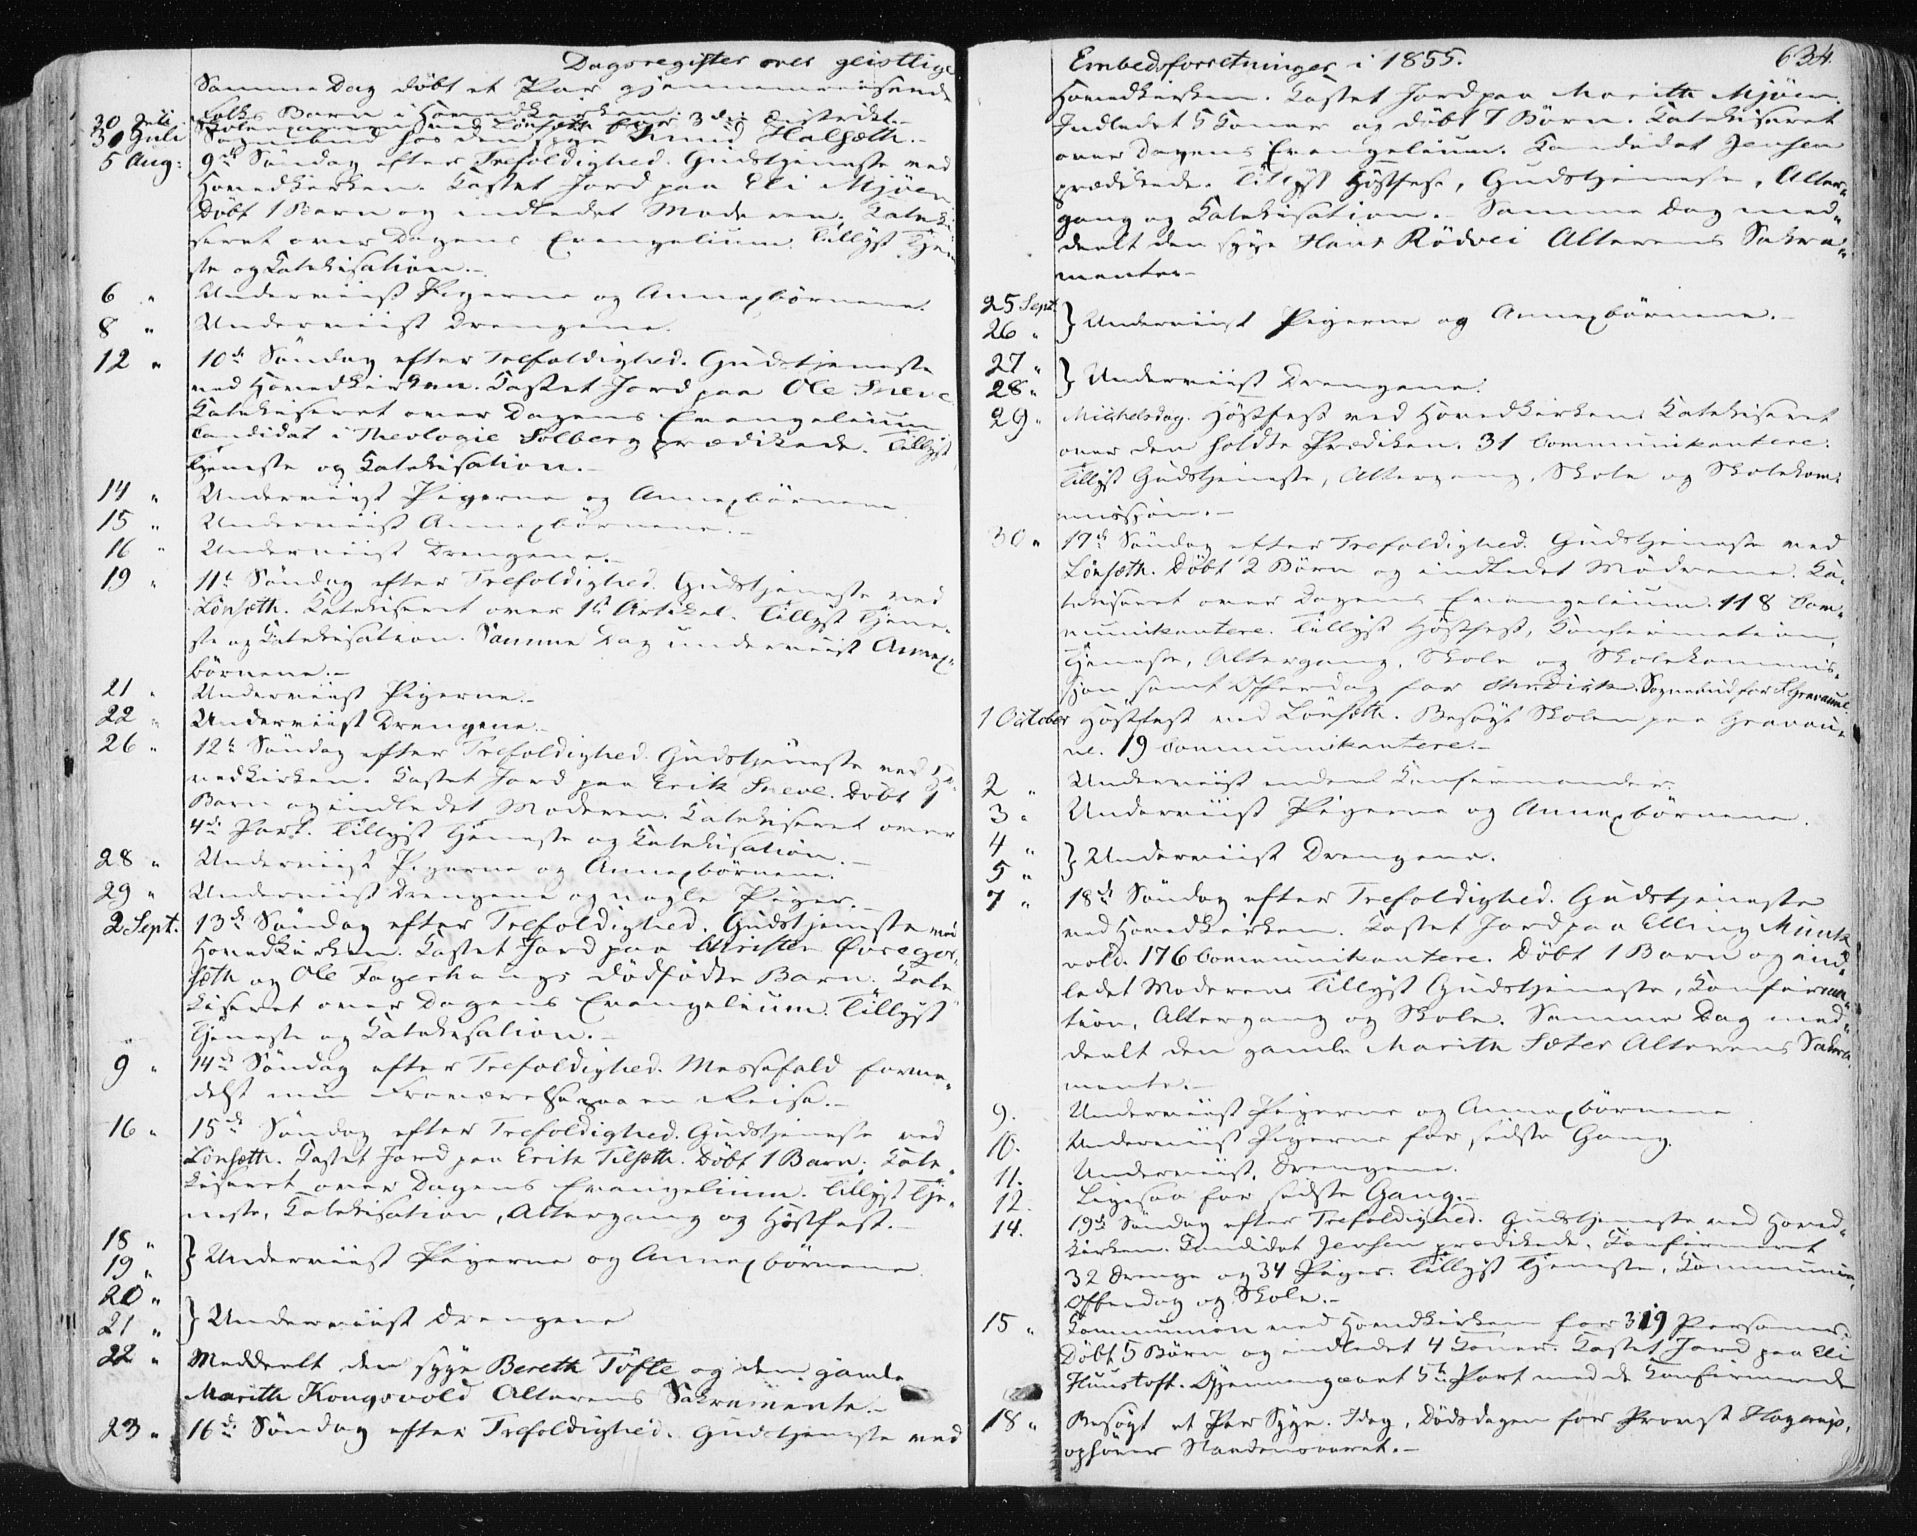 Dagsregister over geistlige
Samme Dag døbt et Par gjennemreisende
Folks Barn i Hovedkirken
30 Juli Skoleexamen ved Lönseth for 3die Distrikt.
31 Juli Sognebud hos den syge Knud Halsæth.
5 Aug: 9de Søndag efter Trefoldighed. Gudstjeneste ved
Hovedkirken. Kastet Jord paa Eli Mjöen
Döbt 1 Barn og indledet Moderen. Kateki-
seret over Dagens Evangelium. Tillyst Tjene-
ste og Katekisation.-
6 " Underviist Pigerne og Annexbörnene.
8 " Underviist Drengene.
12 " 10de Søndag efter Trefoldighed. Gudstjeneste
ved Hovedkirken. Kastet Jord paa Ole Sneve
Katekiseret over Dagens Evangelium
Candidat i Theologie Solberg prædikede. Tillyst
Tjeneste og Katekisation.-
14 " Underviist Pigerne og Annexbörnene
15 " Underviist Annexbörnene.-
16 " Underviist Drengene.-
19 " 11te Søndag efter Trefoldighed. Gudstjeneste ved
Lönsæth. Katekiseret over 1ste Artikel. Tillyst Tjene-
ste og Katekisation. Samme Dag underviist Annex-
börnene.-
21 " Underviist Pigerne.-
22 " Underviist Drengene.-
26 " 12te Søndag efter Trefoldighed. Gudstjeneste ved Ho-
vedkirken. Kastet Jord paa Erik Sneve. Döbt 1
Barn og indledet Moderen. Katekiseret over
4de Part. Tillyst Tjeneste og Katekisation.-
28 " Underviist Pigerne og Annexbörnene.
29 " Underviist Drengene og nogle Piger.-
2 Sept. 13de Søndag efter Trefoldighed. Gudstjeneste ved
Hovedkirken. Kastet Jord paa Christen Øvregor-
sæth og Ole Fagerhaugs dödfödte Barn. Kate-
kiseret over Dagens Evangelium. Tillyst
Tjeneste og Katekisation.-
9 " 14de Søndag efter Trefoldighed. Messefald forme-
delst min Fraværelse paa en Reise.-
16 " 15de Søndag efter Trefoldighed. Gudstjeneste ved
Lönsæth. Kastet Jord paa Erik Tilsæth. Döbt 1 Barn. Kate-
kiseret over Dagens Evangelium. Tillyst Tje-
neste, Katekisation, Altergang og Höstfest.-
18 "
19 " } Underviist Pigerne og Annexbörnene.
20 "
21 " } Underviist Drengene
22 " Meddeelt den syge Bereth Töfte og den gamle
Marith Kongsvold Alterens Sakramente.-
23 " 16de Søndag efter Trefoldighed. Gudstjeneste ved
Embedsforretninger i 1855. 634.
Hovedkirken. Kastet Jord paa Marith Mjöen.
Indledet 5 Koner og döbt 7 Börn. Katekiseret
over Dagens Evangelium. Kandidat Jensen
prædikede. Tillyst Höstfest, Gudstjeneste, Alter-
gang og Katekisation.- Samme Dag med-
deelt den syge Hans Rödvei Alterens Sakra-
mente.-
25 Sept.
26 " } Underviist Pigerne og Annexbörnene.-
27 "
28 " } Underviist Drengene.
29 " Michelsdag. Höstfest ved Hovedkirken. Katekiseret
over den holdte Prædiken. 31 Communikantere.
Tillyst Gudstjeneste, Altergang, Skole og Skolekom-
missjon.-
30 " 17de Søndag efter Trefoldighed. Gudstjeneste ved
Lönsæth. Döbt 2 Börn og indledet Mödrene. Ka-
tekiseret over Dagens Evangelium. 118 Com-
munikantere. Tillyst Höstfest, Konfirmation,
Tjeneste, Altergang, Skole og Skolekommis-
sjon samt Offerdag for Sognebud for Gravaune
1 October Höstfest ved Lönsæth. Besögt Skolen paa Gravau-
ne. 19 Communikantere.-
2 " Underviist endeel Konfirmander.
3 " Underviist Pigerne og Annexbörnene.
4 "
5 " } Underviist Drengene.
7 " 18de Søndag efter Trefoldighed. Gudstjeneste
ved Hovedkirken. Kastet Jord paa Elling Munk-
vold. 176 Communikantere. Döbt 1 Barn og ind-
ledet Moderen. Tillyst Gudstjeneste, Konfirma-
tion, Altergang og Skole. Samme Dag med-
deelt den gamle Marith Sæter Alterens Sakra-
mente.-
9. Underviist Pigerne og Annexbörnene
10. Underviist Pigerne for sidste Gang.
11. Underviist Drengene.
12. Ligesaa for sidste Gang.-
14. 19de Søndag efter Trefoldighed. Gudstjeneste ved Hoved-
kirken. Kandidat Jensen prædikede. Konfirmeret
32 Drenge og 34 Piger. Tillyst Tjeneste, Kommunion,
Offerdag og Skole.-
15 " Kommunion ved Hovedkirken for 319 Personer.
Döbt 5 Börn og indledet 4 Koner. Kastet Jord paa Eli
Huustoft. Gjennemgaaet 5te Part med de Konfirmerede
18 " Besögt et Par Syge. Idag, Dödsdagen for Provst Hagerup,
ophörer Naadensaaret.-